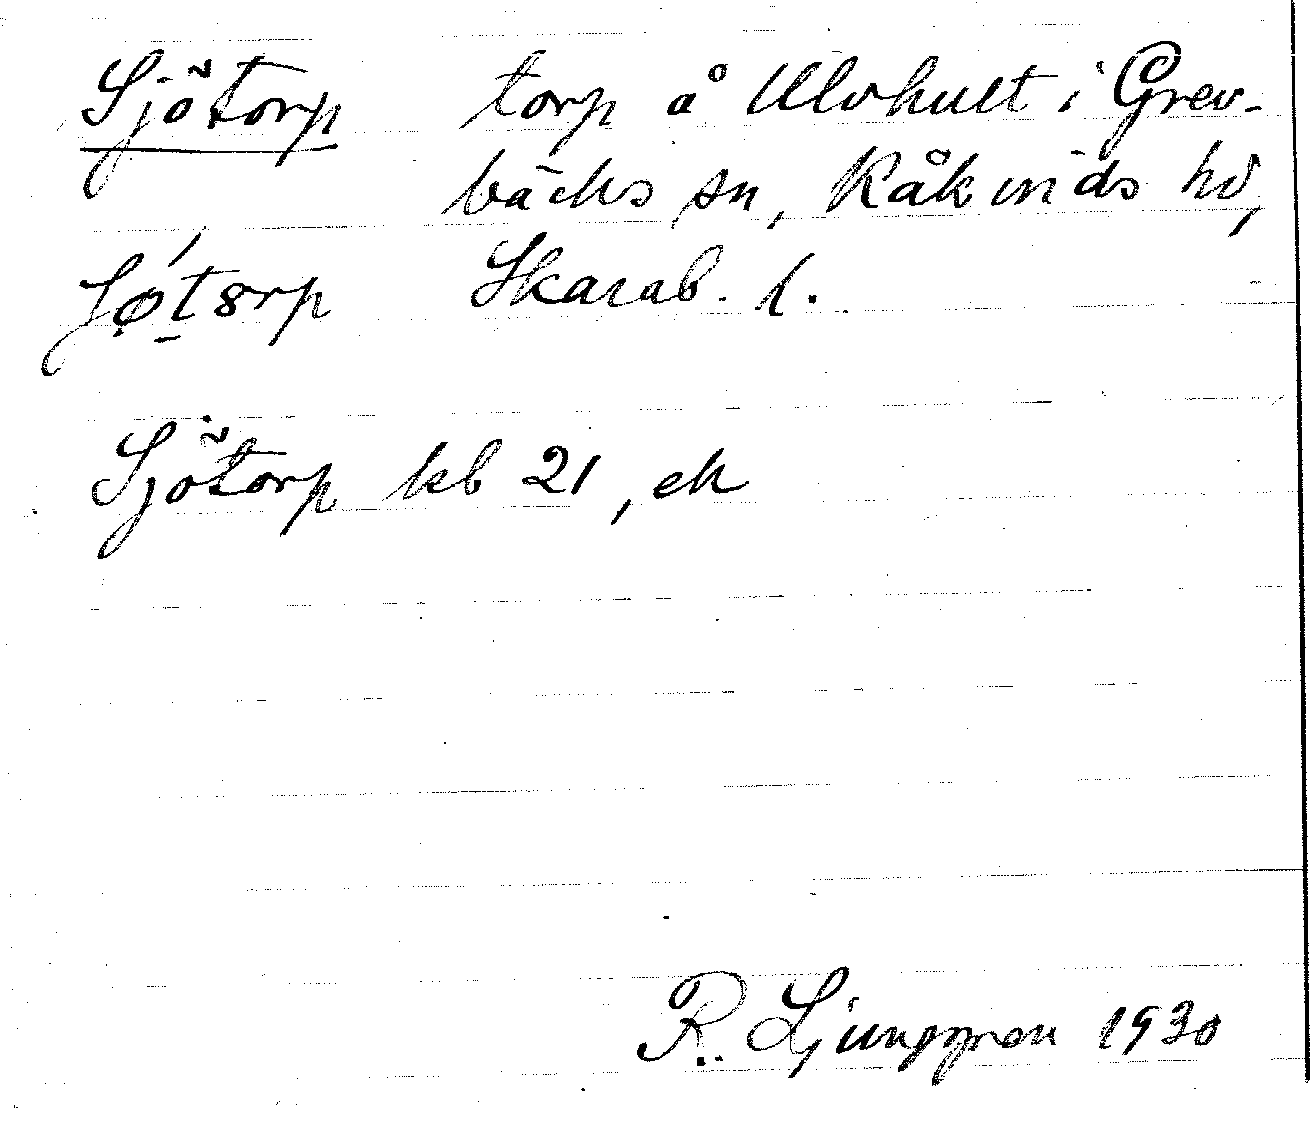 Sjötorp torp å Ulvhult i Grev-
bäcks sn, Kåkinds hd,
Skarab. l.
Sjötorp kb 21, ek
R. Ljunggren 1930